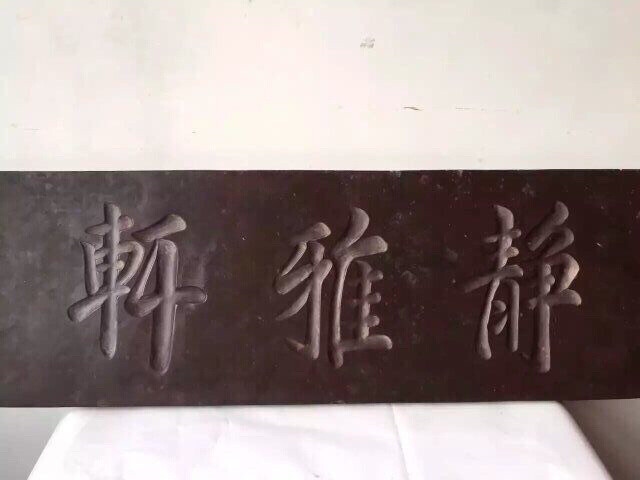 静雅軒